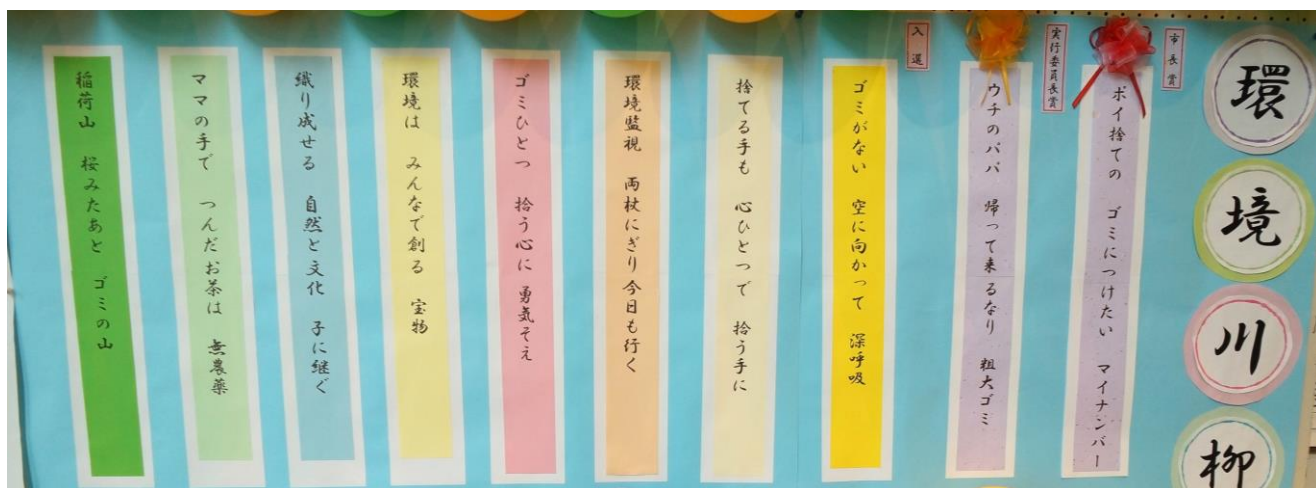 環境川柳
市長賞
ポイ捨ての ゴミにつけたい マイナンバー
実行委員長賞
ウチのパパ 帰って来るなり 粗大ゴミ
入選
ゴミがない 空に向かって 深呼吸
捨てる手も 心ひとつで 拾う手に
環境監視 両杖にぎり今日も行く
ゴミひとつ 拾う心に 勇気そえ
環境は みんなで創る 宝物
織り成せる 自然と文化 子に継ぐ
ママの手で つんだお茶は 無農薬
稲荷山 桜みたあと ゴミの山